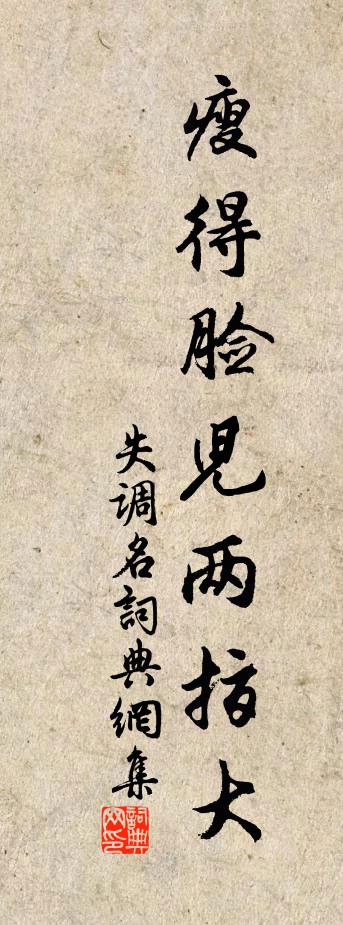 瘦得脸児两指大
失调名詞典網集
詞典网印